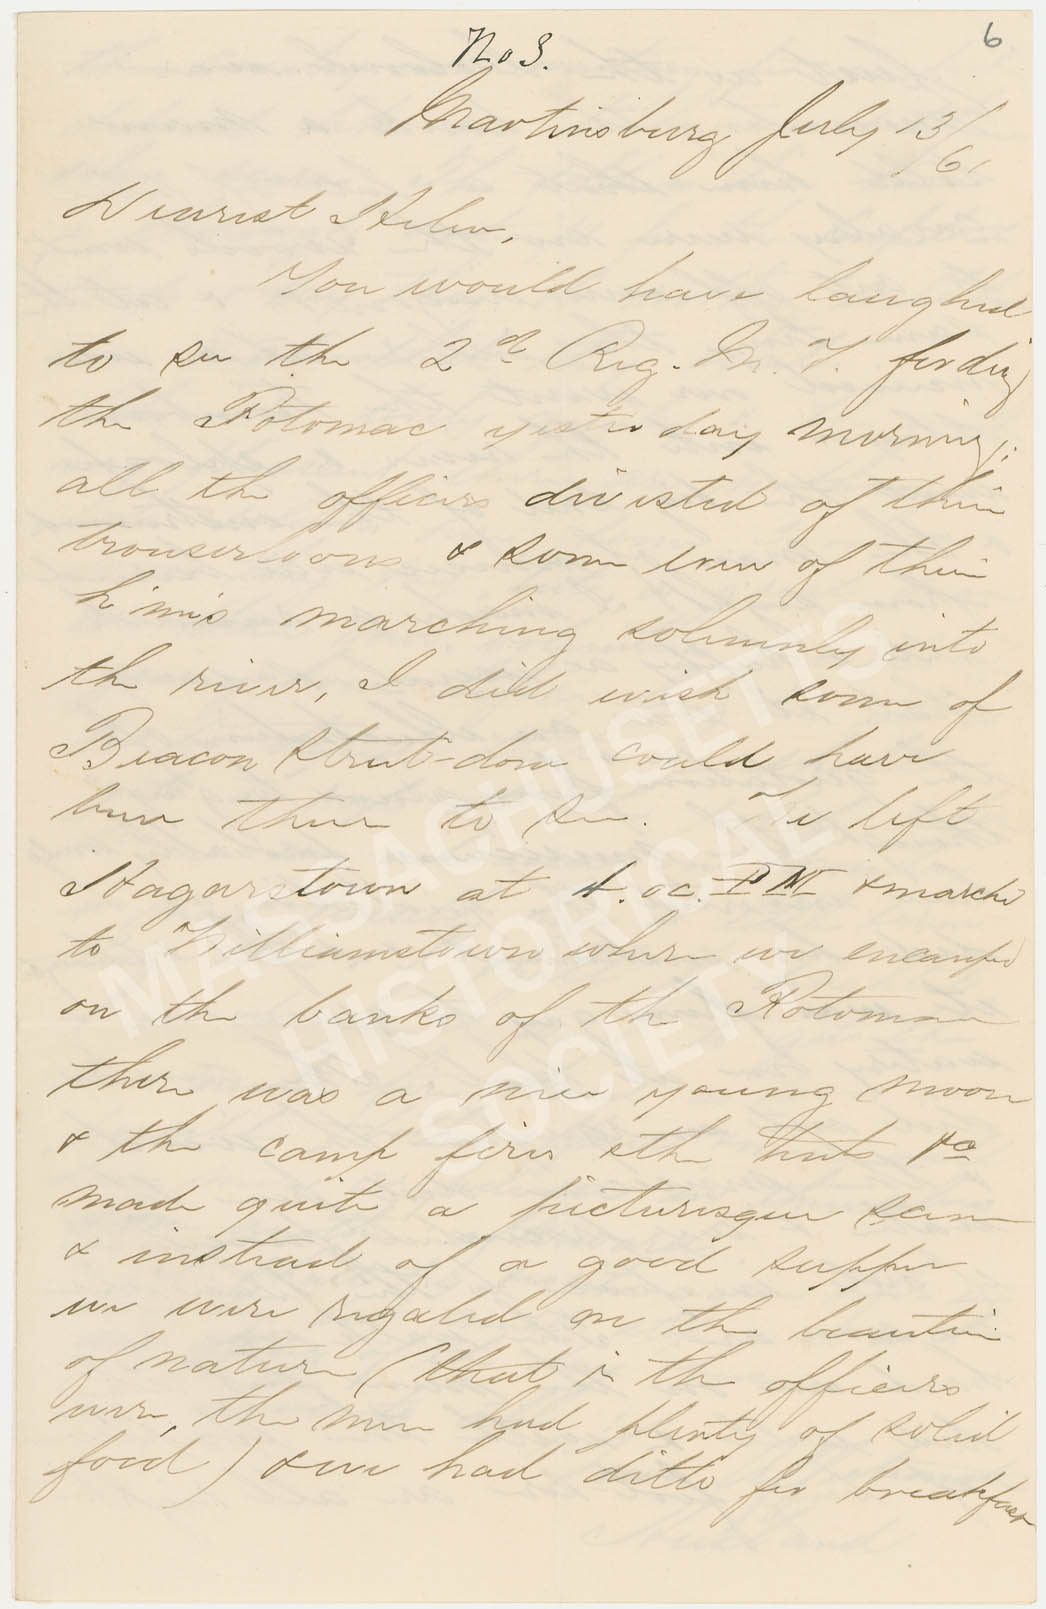 No 3.
6
Martinsburg July 13/61
Dearest Helen,
You would have laughed
to see the 2d Reg. M. V. fording
the Potomac yesterday morning;
all the officers divested of their
trouserloons & some even of their
marching solemnly into
the river, I did wish some of
Beacon Street-dom could have
been there to see. We left
Hagarstown at 4. oc. PM & marched
to Williamstown where we encamped
on the banks of the Potomac
there was a nice young moon
& the camp fires & the tents &c
made quite a picturesque scene
& instead of a good supper
we were regaled on the beauties
of nature (that is the officers
were, the men had plenty of solid
food) & we had ditto for breakfast
MASSACHUSETTS
HISTORICAL
SOCIETY